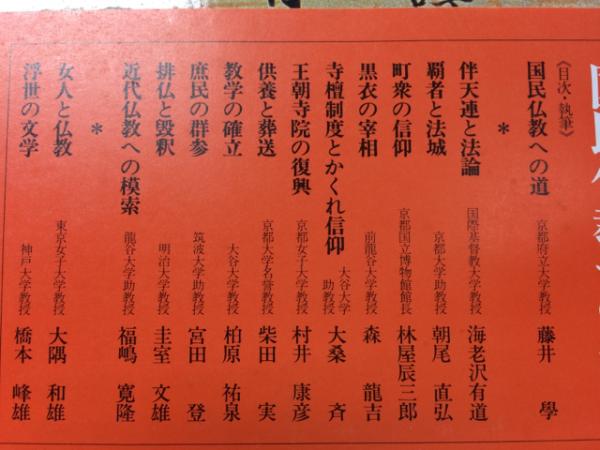 国民仏教への
《目次・執筆》
国民仏教への道 京都府立大学教授 藤井 學
＊
伴天連と法論 国際基督教大学教授 海老沢有道
覇者と法城 京都大学助教授 朝尾 直弘
町衆の信仰 京都国立博物館館長 林屋辰三郎
黒衣の宰相 前龍谷大学教授 森 龍吉
寺檀制度とかくれ信仰 大谷大学助教授 大桑 斉
王朝寺院の復興 京都女子大学教授 村井 康彦
供養と葬送 京都大学名誉教授 柴田 実
教学の確立 大谷大学教授 柏原 祐泉
庶民の群参 筑波大学助教授 宮田 登
排仏と毀釈 明治大学教授 圭室 文雄
近代仏教への模索 龍谷大学助教授 福嶋 寛隆
＊
女人と仏教 東京女子大学教授 大隅 和雄
浮世の文学 神戸大学教授 橋本 峰雄